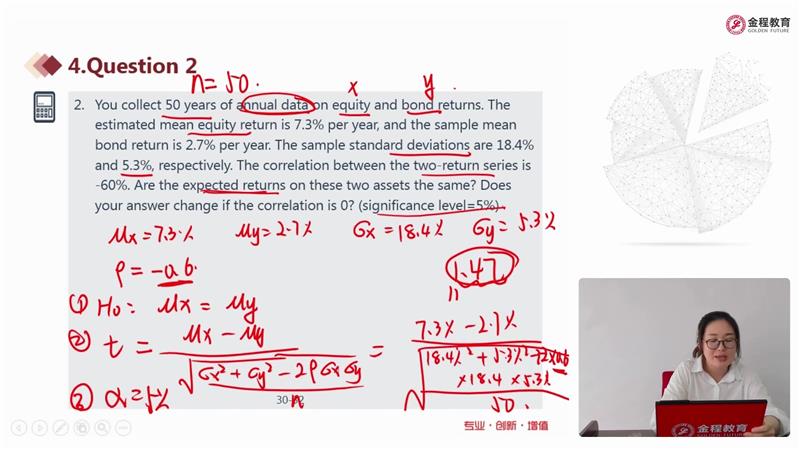 金程教育
GOLDEN FUTURE
4.Question 2
n=50.
x y.
2. You collect 50 years of annual data on equity and bond returns. The
estimated mean equity return is 7.3% per year, and the sample mean
bond return is 2.7% per year. The sample standard deviations are 18.4%
and 5.3%, respectively. The correlation between the two-return series is
-60%. Are the expected returns on these two assets the same? Does
your answer change if the correlation is 0? (significance level=5%)
μx=7.3% μy=2.7% σx=18.4% σy=5.3%
ρ=-0.6.
1.47
① H₀: μx = μy
② t = (μx - μy) / √((σx²+σy²-2ρσxσy)/n) = 
7.3%-2.7%
18.4%²+5.3%²+2×0.6
×18.4×5.3%
50.
③ α=5%
30-92
专业·创新·增值
金程教育